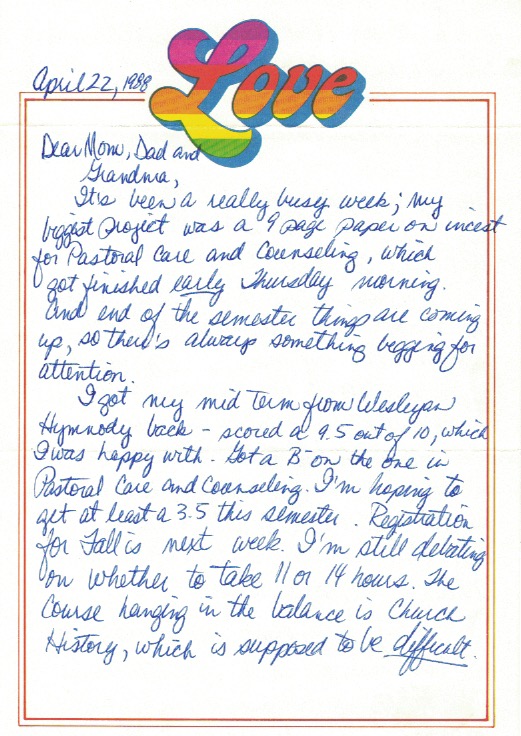 Love
April 22, 1988
Dear Mom, Dad and
Grandma,
It's been a really busy week; my
biggest project was a 9 page paper on incest
for Pastoral Care and Counseling, which
got finished early Thursday morning.
And end of the semester things are coming
up, so there's always something begging for
attention.
I got my mid term from Wesleyan
Hymnody back - scored a 9.5 out of 10, which
I was happy with. Got a B- on the one in
Pastoral Care and Counseling. I'm hoping to
get at least a 3.5 this semester. Registration
for Fall is next week. I'm still debating
on whether to take 11 or 14 hours. The
course hanging in the balance is Church
History, which is supposed to be difficult.